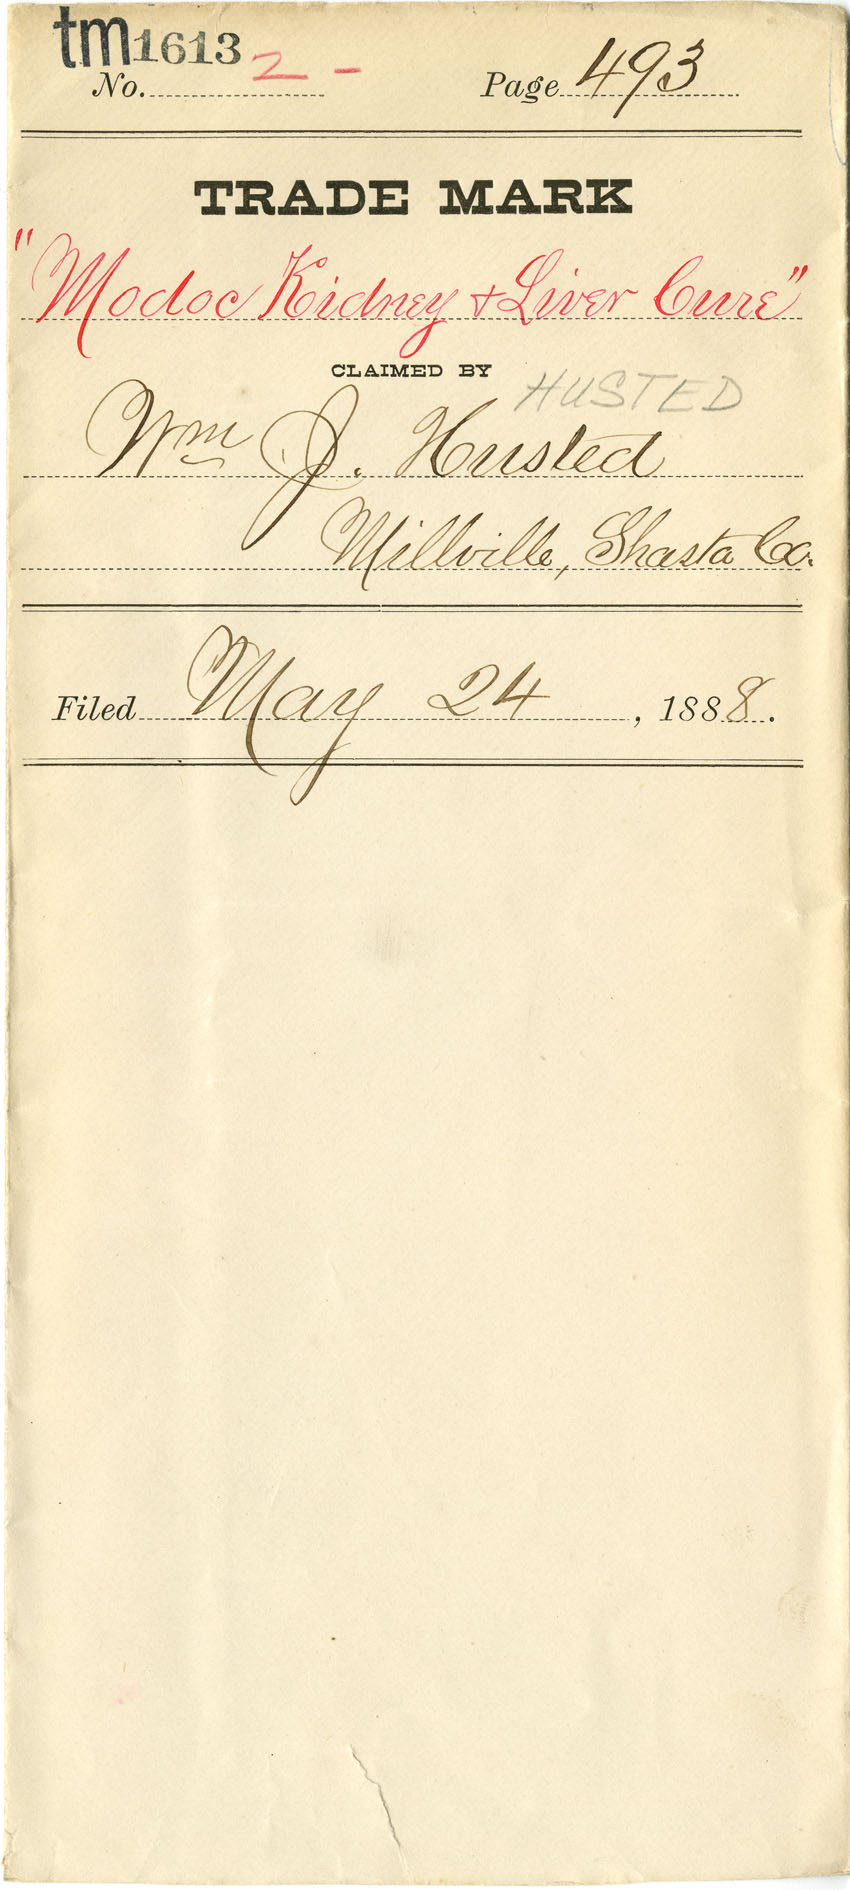 tm1613 2 -
No. Page 493
TRADE MARK
"Modoc Kidney & Liver Cure"
CLAIMED BY
HUSTED
Wm J. Husted
Millville, Shasta Co.
Filed May 24, 1888.